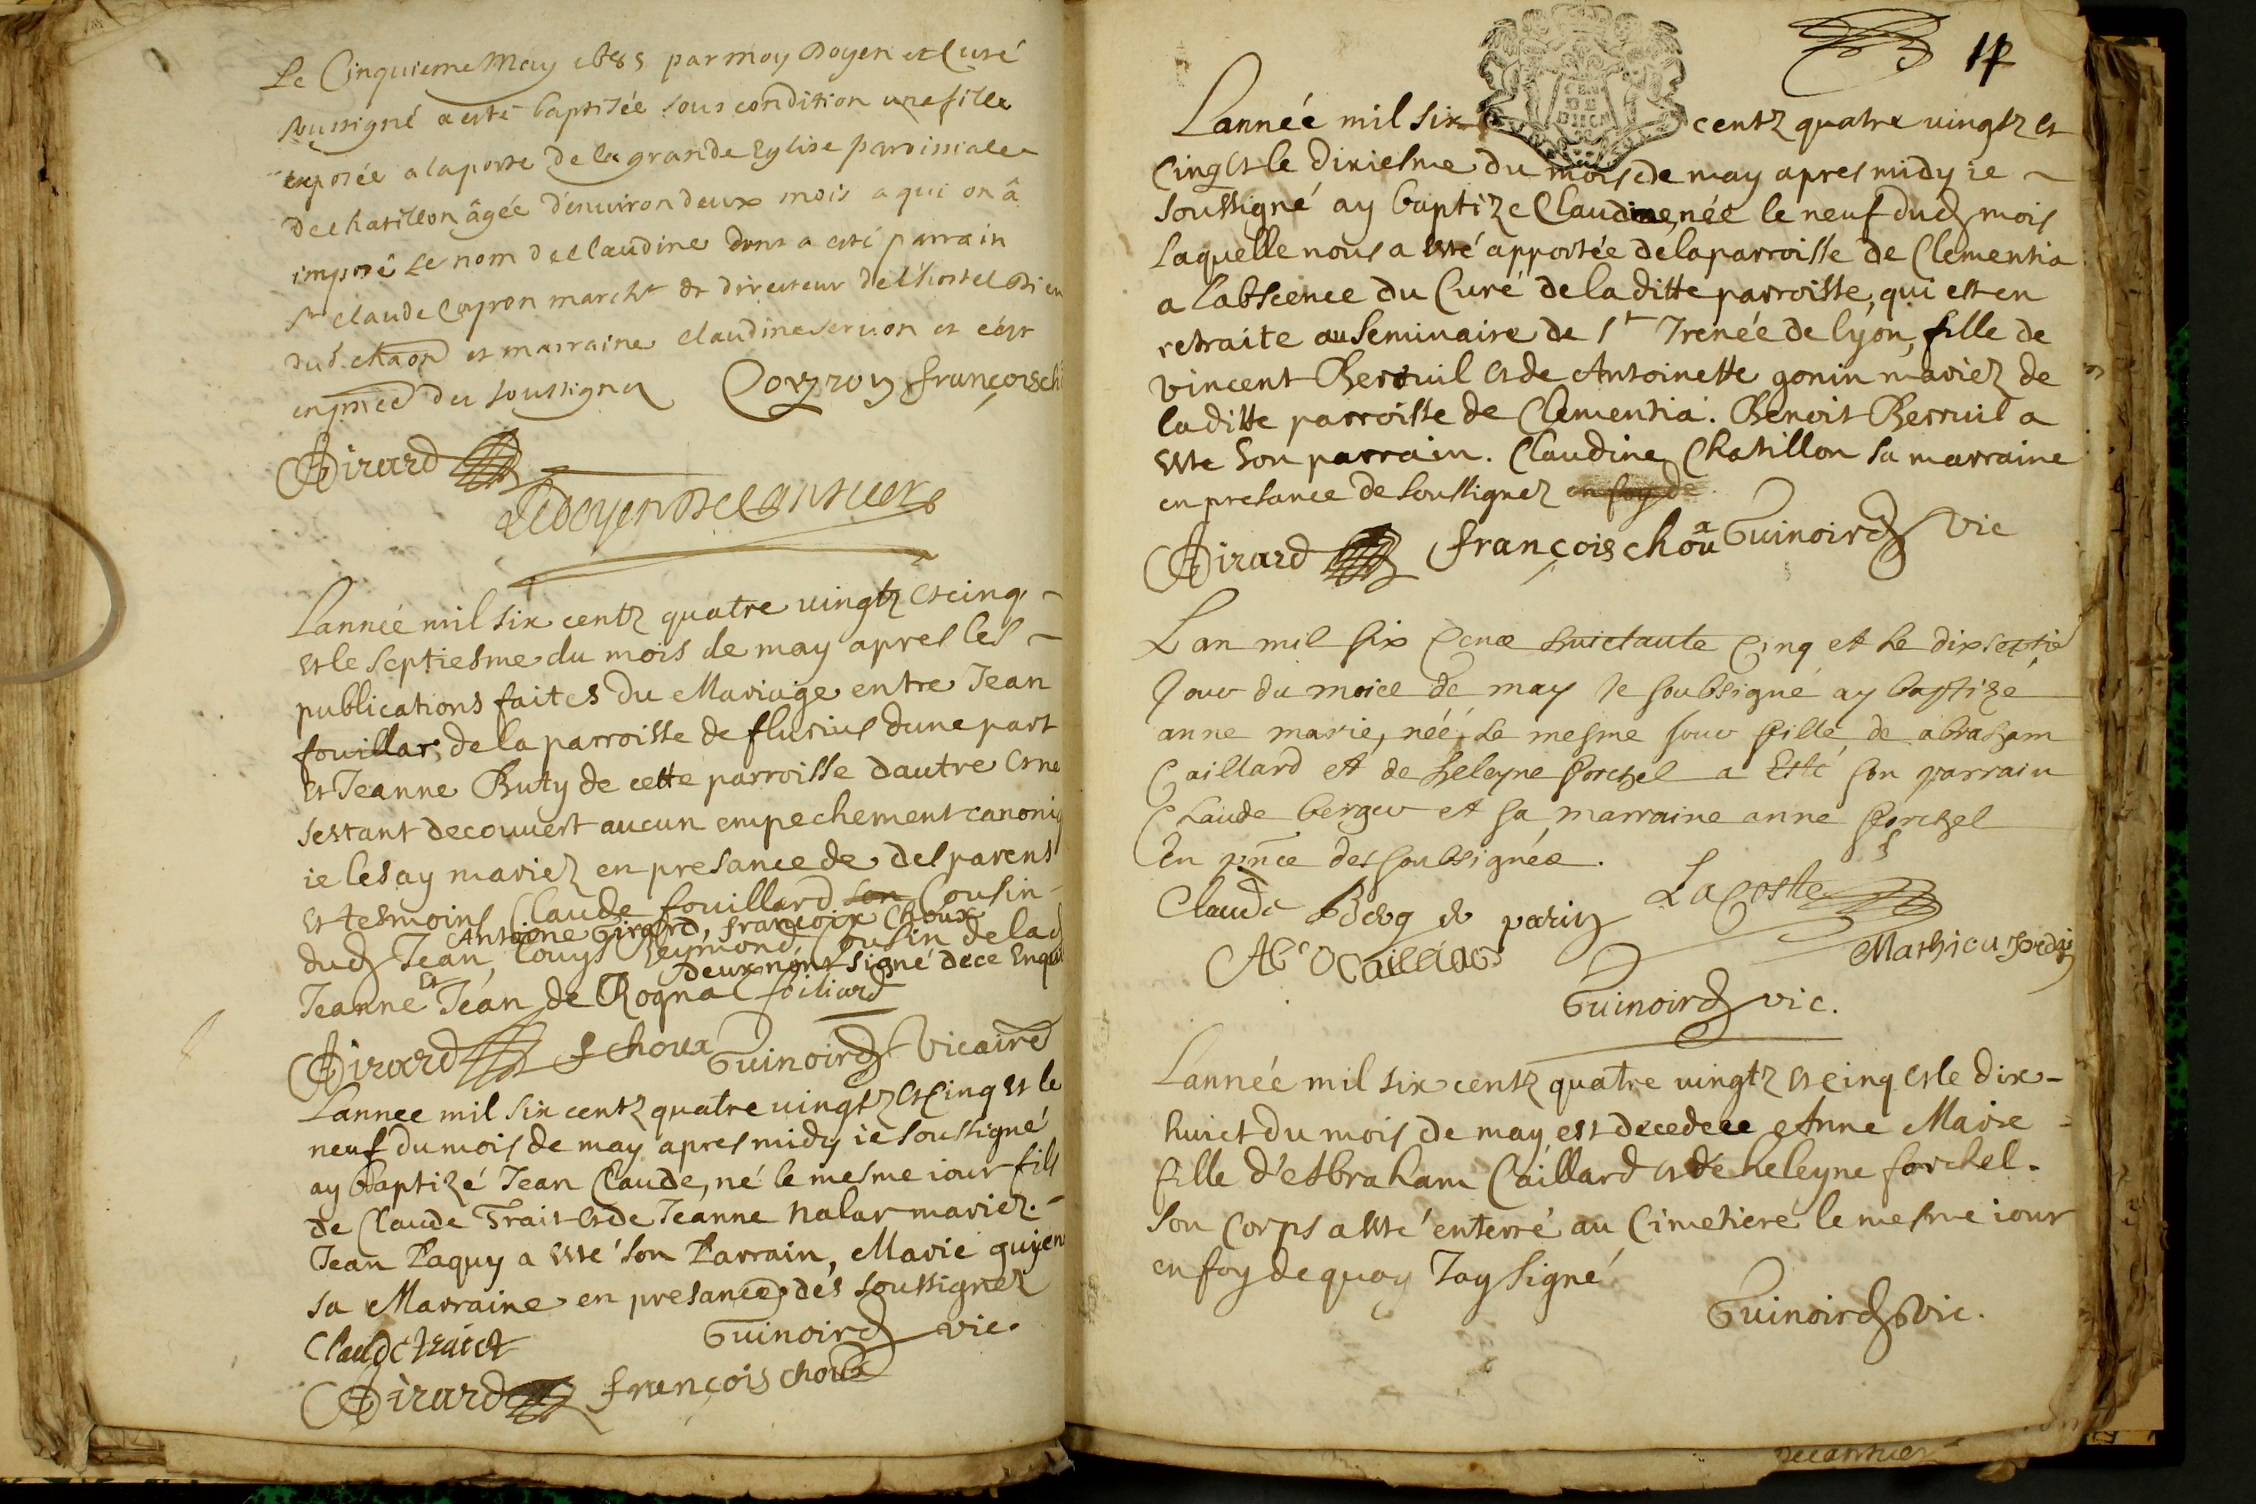 Le Cinquieme May 1685 par moy Doyen et Curé
soussigné a esté baptisée sous condition une fille
exposée a la porte de la grande Eglise parroissiale
De chatillon âgée d'enuiron deux mois a qui on â
imposé le nom de claudine dont a esté parrain
Sr claude Coyron marcht & directeur de l'hostel Dieu
dud. chaon et marraine claudine seruon et
en pnce des soussignez Coyron françois ch
Girard
Le doyen De
Lannée mil six centz quatre uingtz et cinq
et le septiesme du mois de may apres les
publications faites du Mariage entre Jean
fouillar, de la parroisse de flurius dune part
et Jeanne Buty de cette parroisse dautre et ne
sestant decouuert aucun empechement canoniq
ie les ay mariez en presance de des parens
et tesmoins Claude fouillard son Cousin
Antoine Girard, françoix Choux
dud Jean, Louys Reymond, Cousin de la d
deux nont signé de ce Enquis
Jeanne et Jean de Rogna foiliard
Girard f choux Guinoird Vicaire
Lannee mil six centz quatre uingtz et Cinq et le
neuf du mois de may apres midy ie soussigné
ay baptizé Jean Claude, né le mesme iour fils
de Claude Trait et de Jeanne nalar mariez.
Jean Paquy a esté son Parrain, Marie guyen
sa Marraine en presance des soussignez
Claude traict Guinoird vic.
Girard françois choux
14
Lannéé mil six centz quatre uingtz et
cinq et le dixiesme du mois de may apres midy ie
soussigné ay baptize Claudine, née le neuf dud mois
laquelle nous a esté apportée de la parroisse de Clementia
a labscence du Curé de la ditte parroisse, qui est en
retraite au Seminaire de St Irenée de lyon, fille de
vincent Berruil et de Antoinette gonin mariez de
la ditte parroisse de Clementia. Benoit Berruil a
este son parrain. Claudine Chatillon sa marraine
en presance de soussignez en foy de
Girard françois choux Guinoird vic
Lan mil six Cens huictante Cinq et le dixseptie
Jour du mois de may Je soubsigné ay baptizé
anne marie, néé le mesme jour fille de abraham
Caillard et de heleyne forchel a Esté son parrain
Claude berger et sa marraine anne forchel
En pnce des soubsignés.
Claude Berg parin LaCoste
Ab Caillard Mathieu
Guinoird vic.
Lannéé mil six centz quatre uingtz et cinq et le dix-
huict du mois de may est decedeee Anne Marie
fille d'Abraham Caillard et de heleyne forchel.
Son Corps a esté enterré au Cimetiere le mesme iour
en foy de quoy Jay signé
Guinoird Vic.